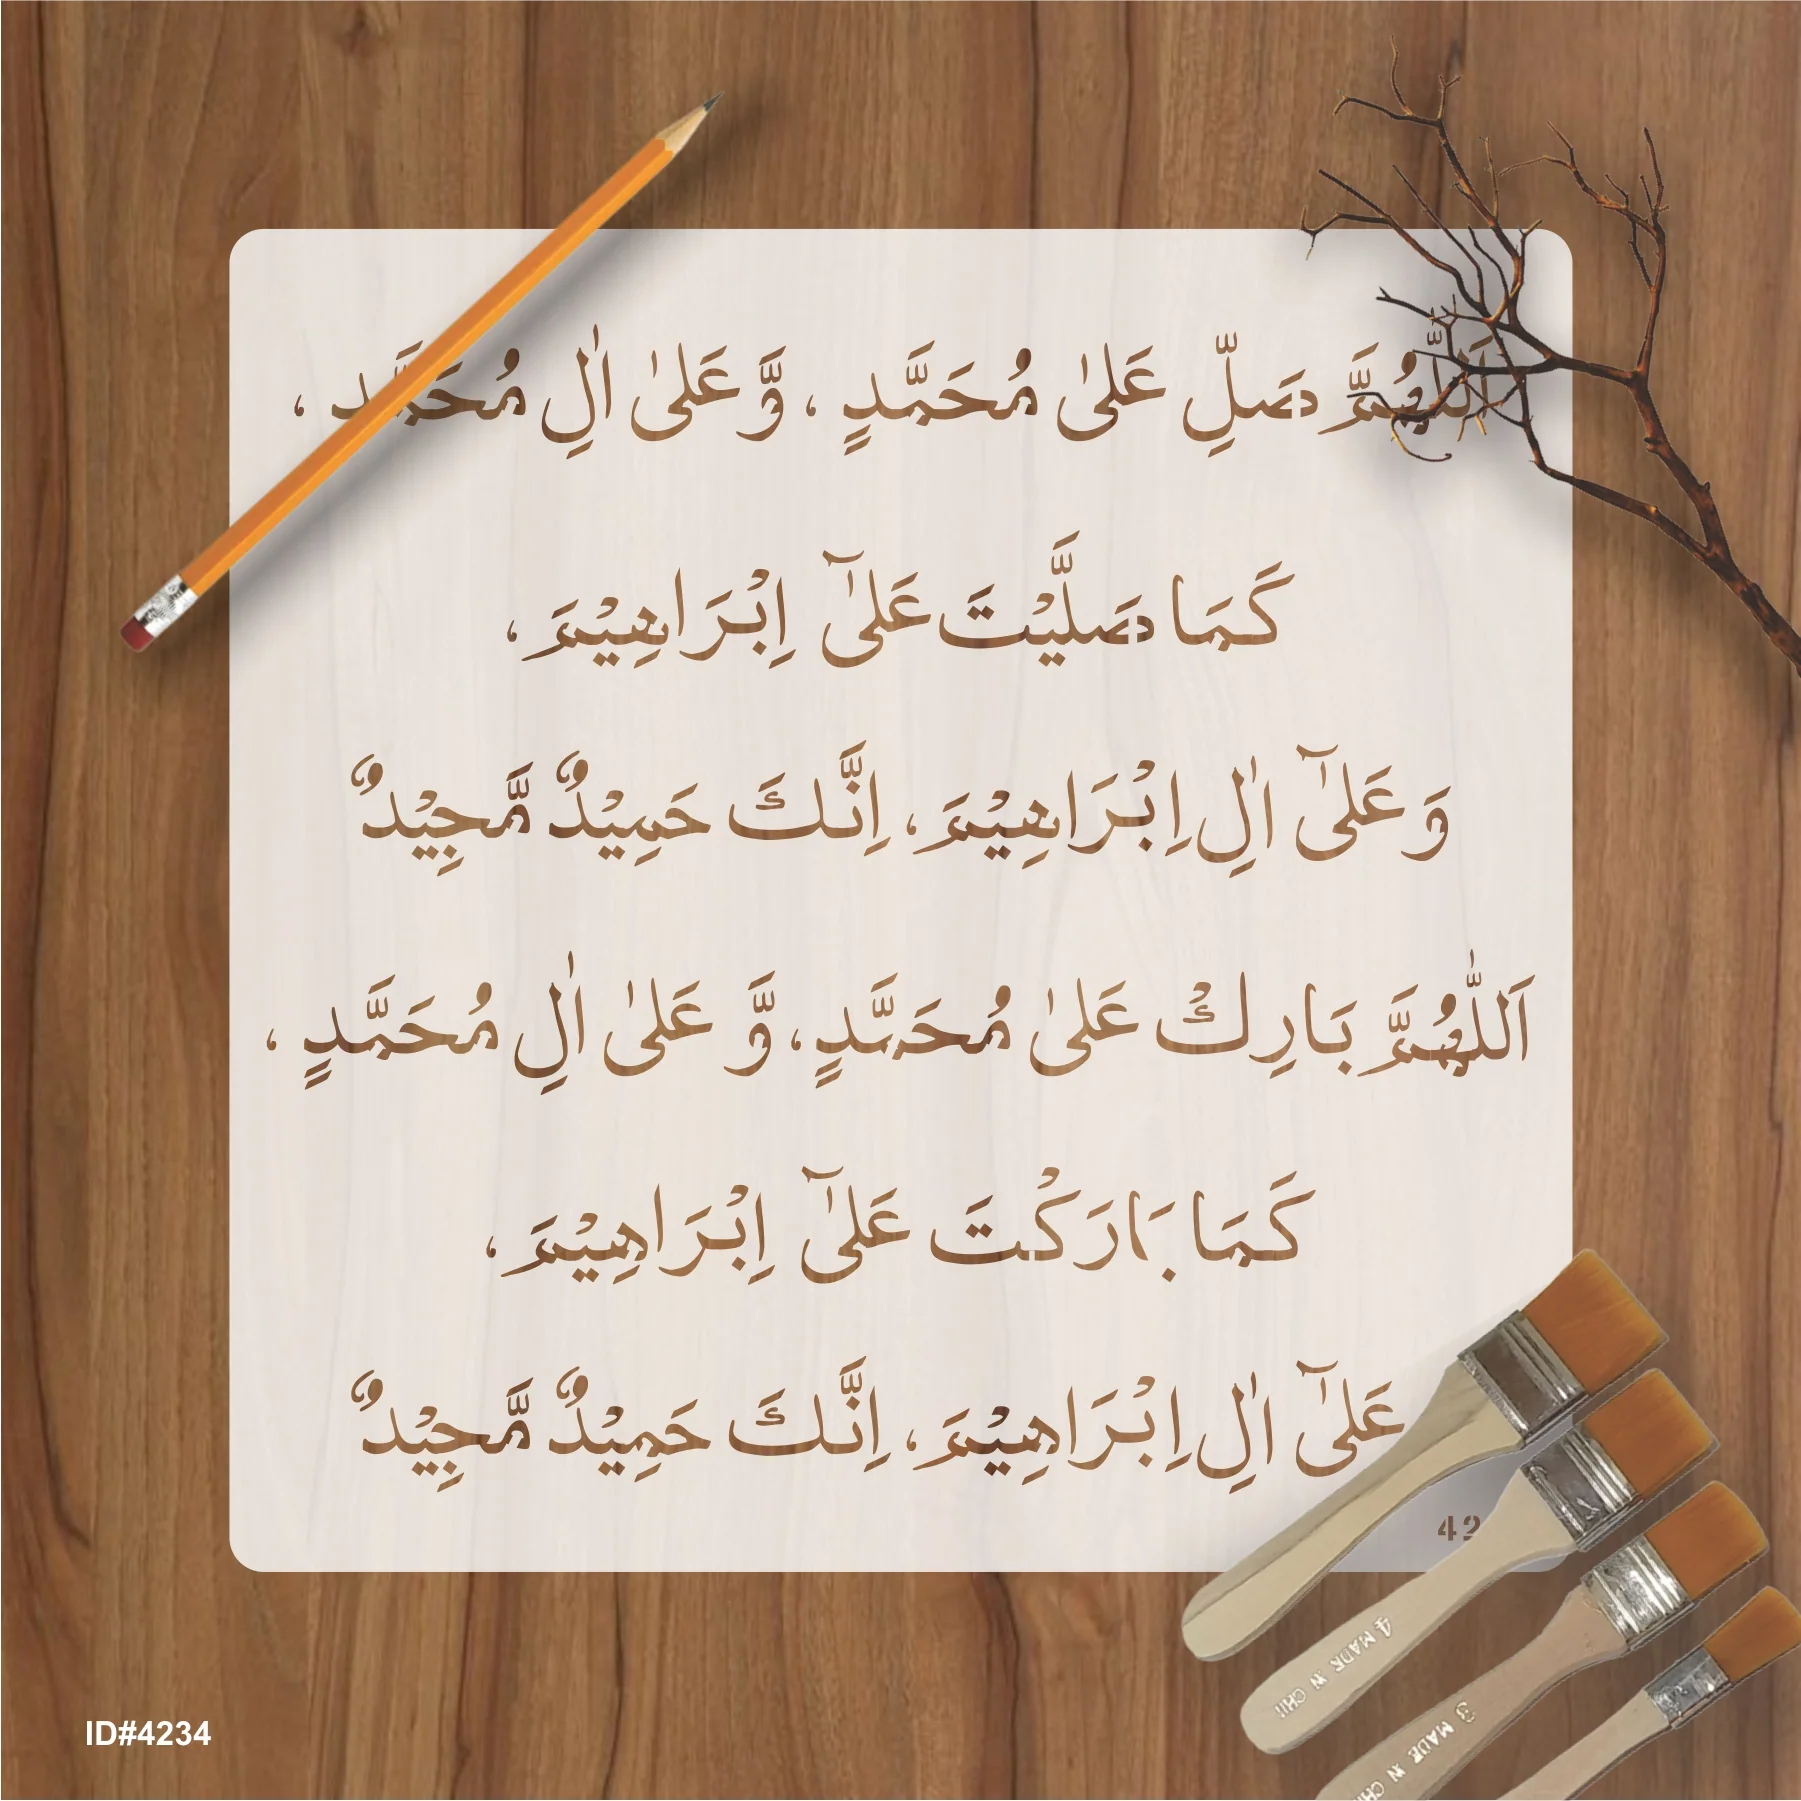 اَللّٰهُمَّ صَلِّ عَلىٰ مُحَمَّدٍ ، وَّ عَلىٰ اٰلِ مُحَمَّدٍ ،
كَمَا صَلَّيْتَ عَلىٰٓ اِبْرَاهِيْمَ ،
وَ عَلىٰٓ اٰلِ اِبْرَاهِيْمَ ، اِنَّكَ حَمِيْدٌ مَّجِيْدٌ
اَللّٰهُمَّ بَارِكْ عَلىٰ مُحَمَّدٍ ، وَّ عَلىٰ اٰلِ مُحَمَّدٍ ،
كَمَا بَارَكْتَ عَلىٰٓ اِبْرَاهِيْمَ ،
عَلىٰٓ اٰلِ اِبْرَاهِيْمَ ، اِنَّكَ حَمِيْدٌ مَّجِيْدٌ
42
4 MADE IN CHI
3 MADE IN CHI
ID#4234